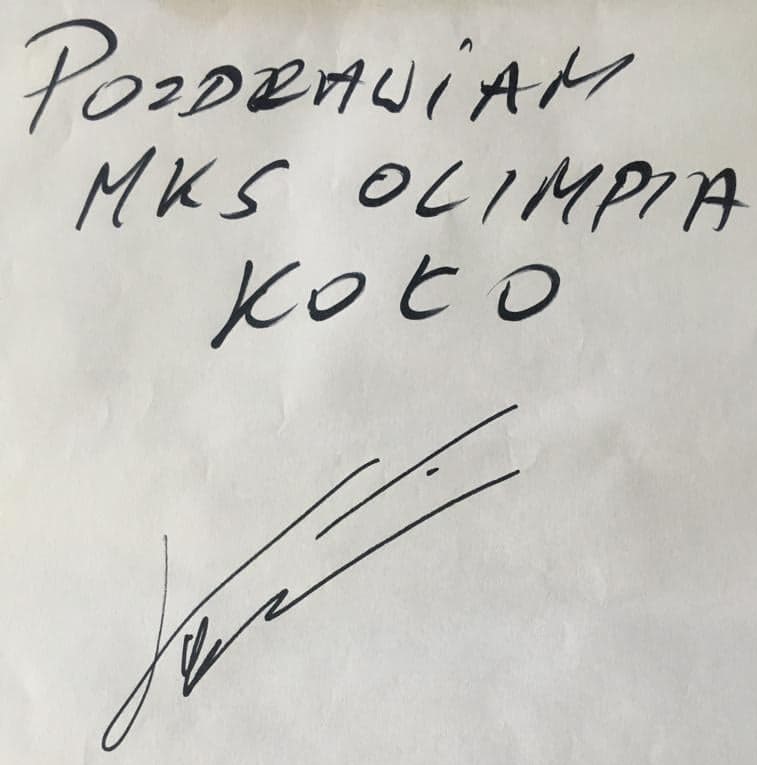 POZDRAWIAM
MKS OLIMPIA
KOŁO